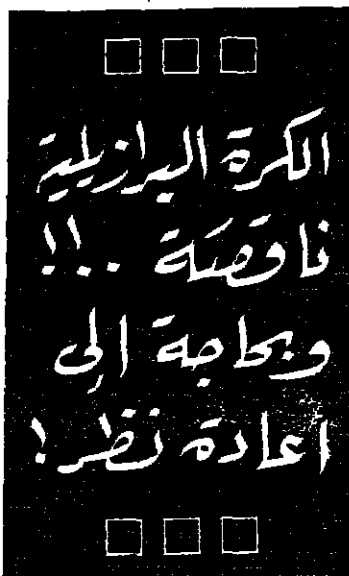 الكرة البرازيلية
ناقصة ..!!
وبحاجة الى
اعادة نظر !